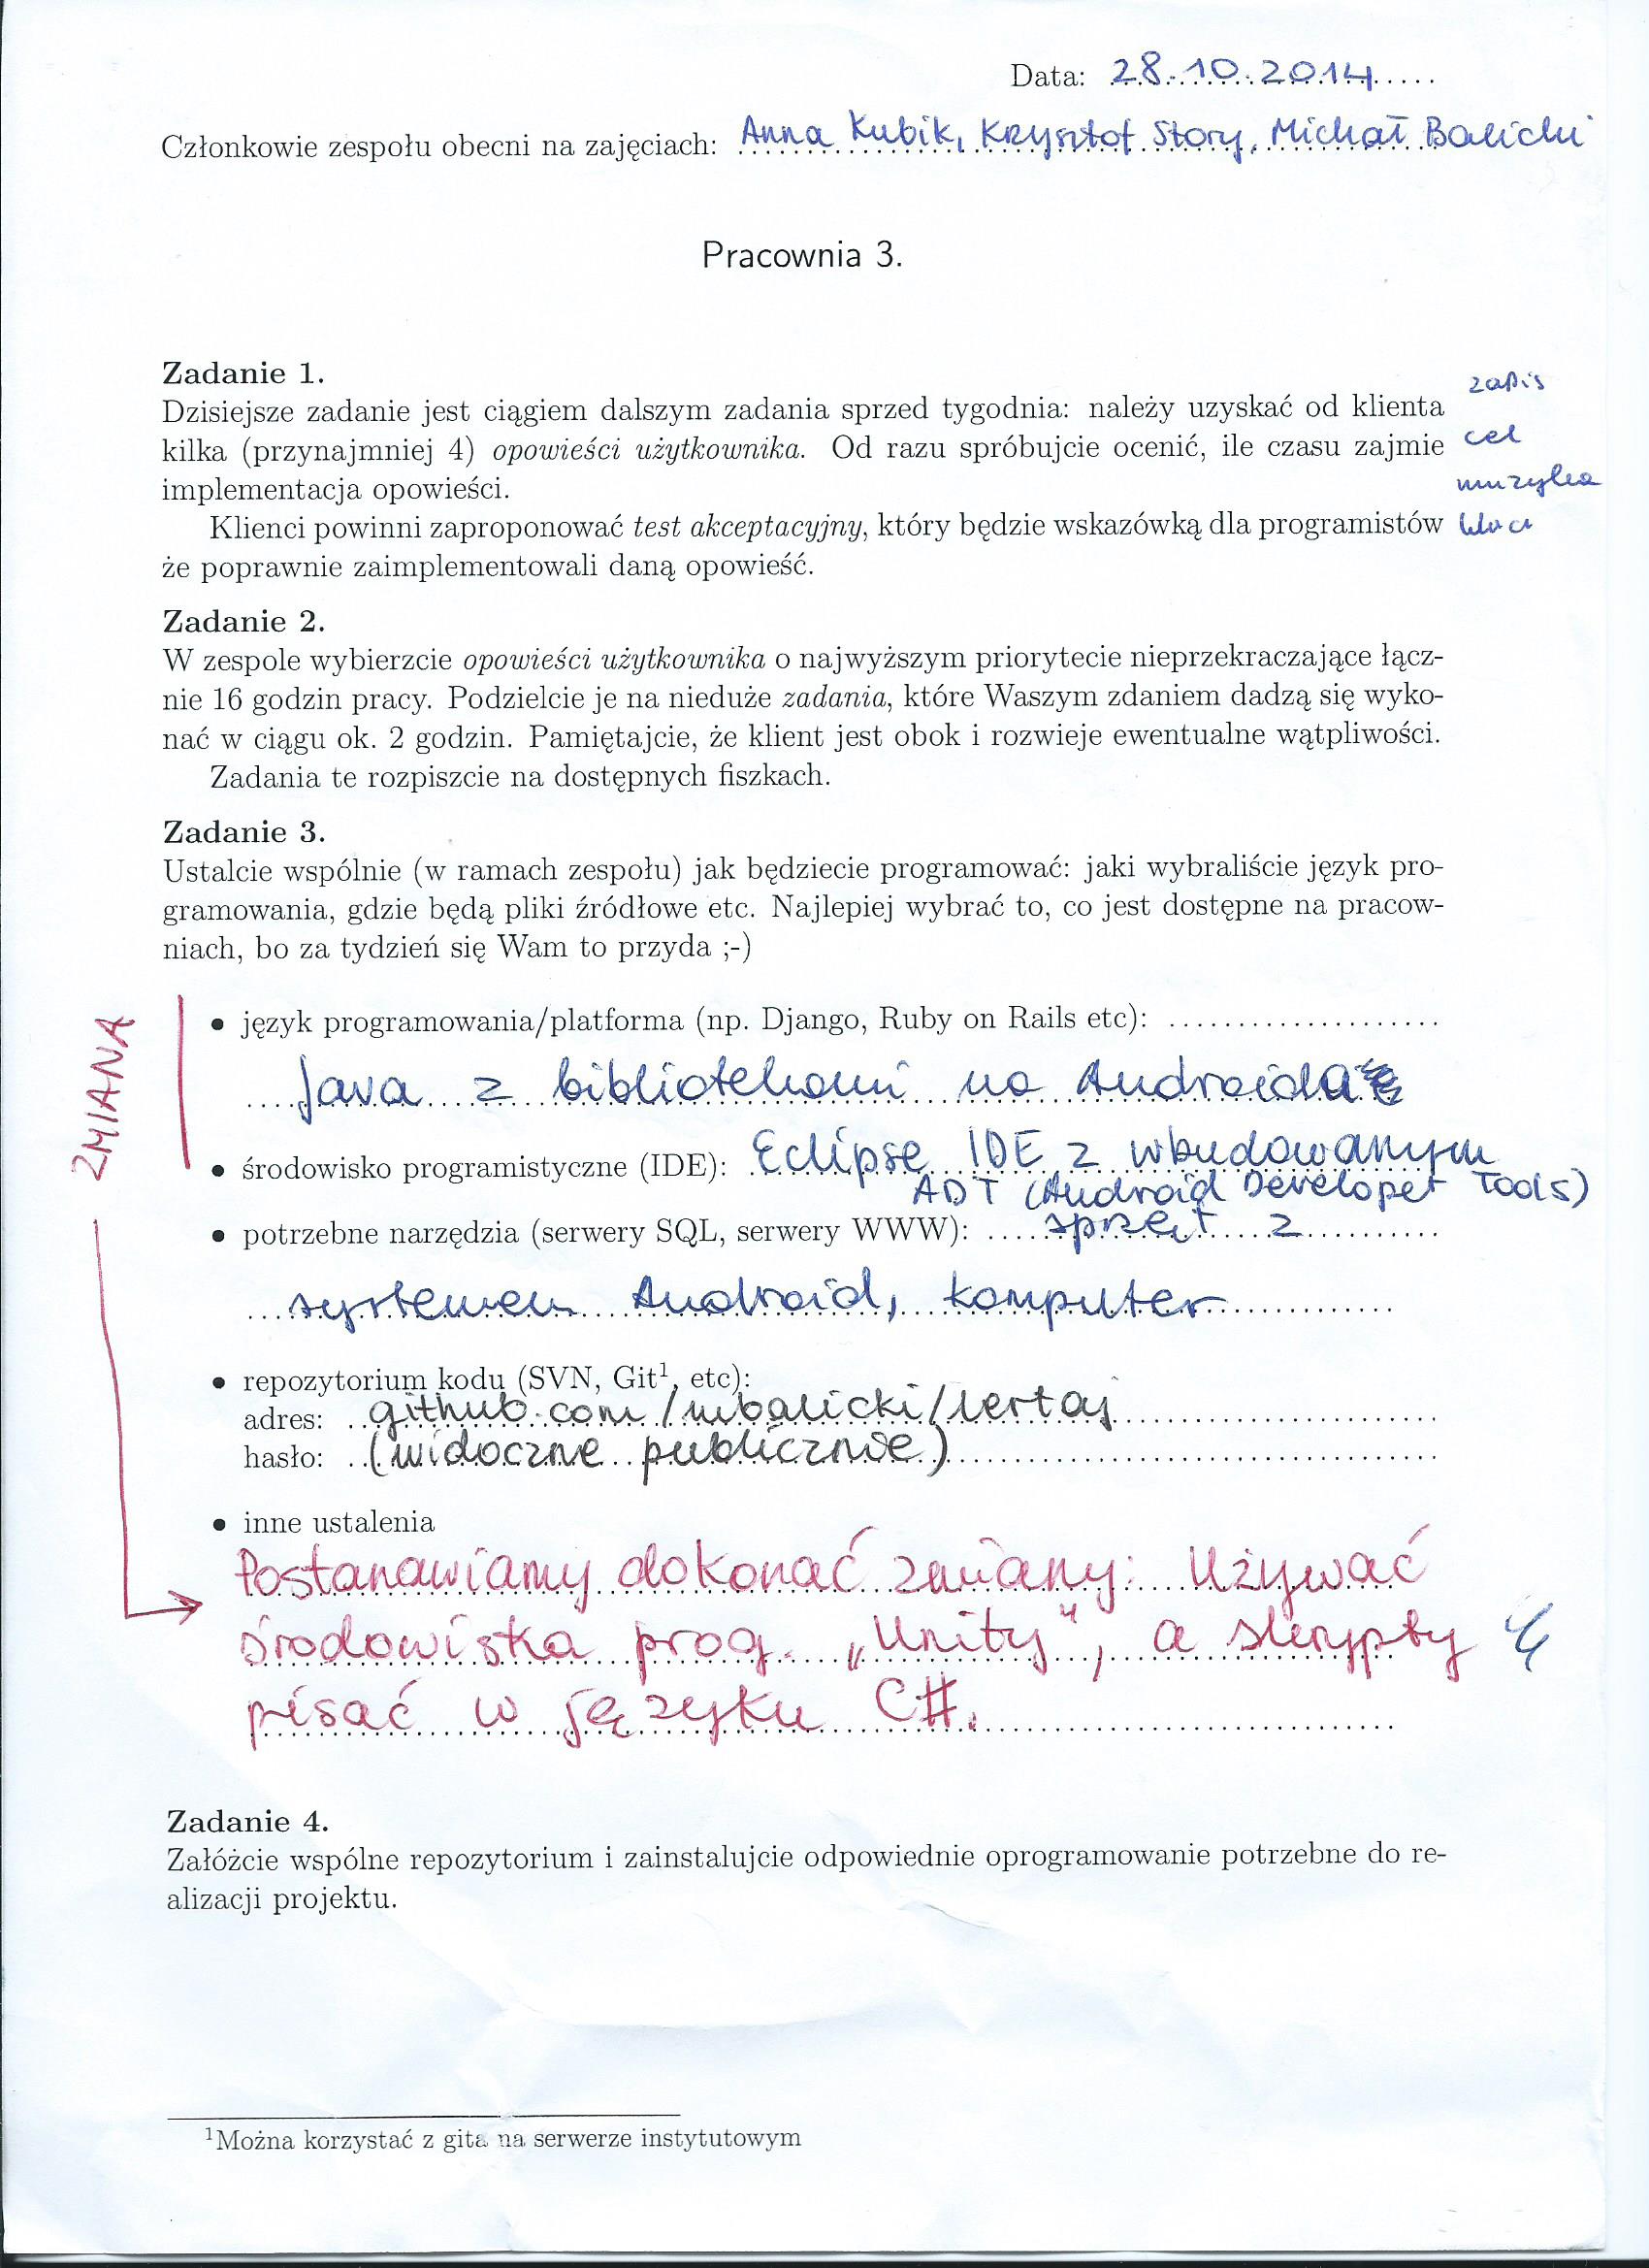 Data: 28.10.2014
Członkowie zespołu obecni na zajęciach: Anna Kubik, Krzysztof Story, Michał Balicki
Pracownia 3.
Zadanie 1.
zapis
Dzisiejsze zadanie jest ciągiem dalszym zadania sprzed tygodnia: należy uzyskać od klienta
kilka (przynajmniej 4) opowieści użytkownika. Od razu spróbujcie ocenić, ile czasu zajmie
cel
implementacja opowieści.
muzyka
Klienci powinni zaproponować test akceptacyjny, który będzie wskazówką dla programistów
że poprawnie zaimplementowali daną opowieść.
Zadanie 2.
W zespole wybierzcie opowieści użytkownika o najwyższym priorytecie nieprzekraczające łącz-
nie 16 godzin pracy. Podzielcie je na nieduże zadania, które Waszym zdaniem dadzą się wyko-
nać w ciągu ok. 2 godzin. Pamiętajcie, że klient jest obok i rozwieje ewentualne wątpliwości.
Zadania te rozpiszcie na dostępnych fiszkach.
Zadanie 3.
Ustalcie wspólnie (w ramach zespołu) jak będziecie programować: jaki wybraliście język pro-
gramowania, gdzie będą pliki źródłowe etc. Najlepiej wybrać to, co jest dostępne na pracow-
niach, bo za tydzień się Wam to przyda ;-)
ZMIANA
• język programowania/platforma (np. Django, Ruby on Rails etc):
Java z bibliotekami na Androida
• środowisko programistyczne (IDE): Eclipse IDE z wbudowanym
ADT (Android Developer Tools)
• potrzebne narzędzia (serwery SQL, serwery WWW): sprzęt z
systemem Android, komputer
• repozytorium kodu (SVN, Git¹, etc):
adres: github.com/mbalicki/lertaj
hasło: (widoczne publicznie)
• inne ustalenia
Postanawiamy dokonać zmiany: Używać
środowiska prog. „Unity", a skrypty
pisać w języku C#.
Zadanie 4.
Załóżcie wspólne repozytorium i zainstalujcie odpowiednie oprogramowanie potrzebne do re-
alizacji projektu.
¹Można korzystać z gita na serwerze instytutowym